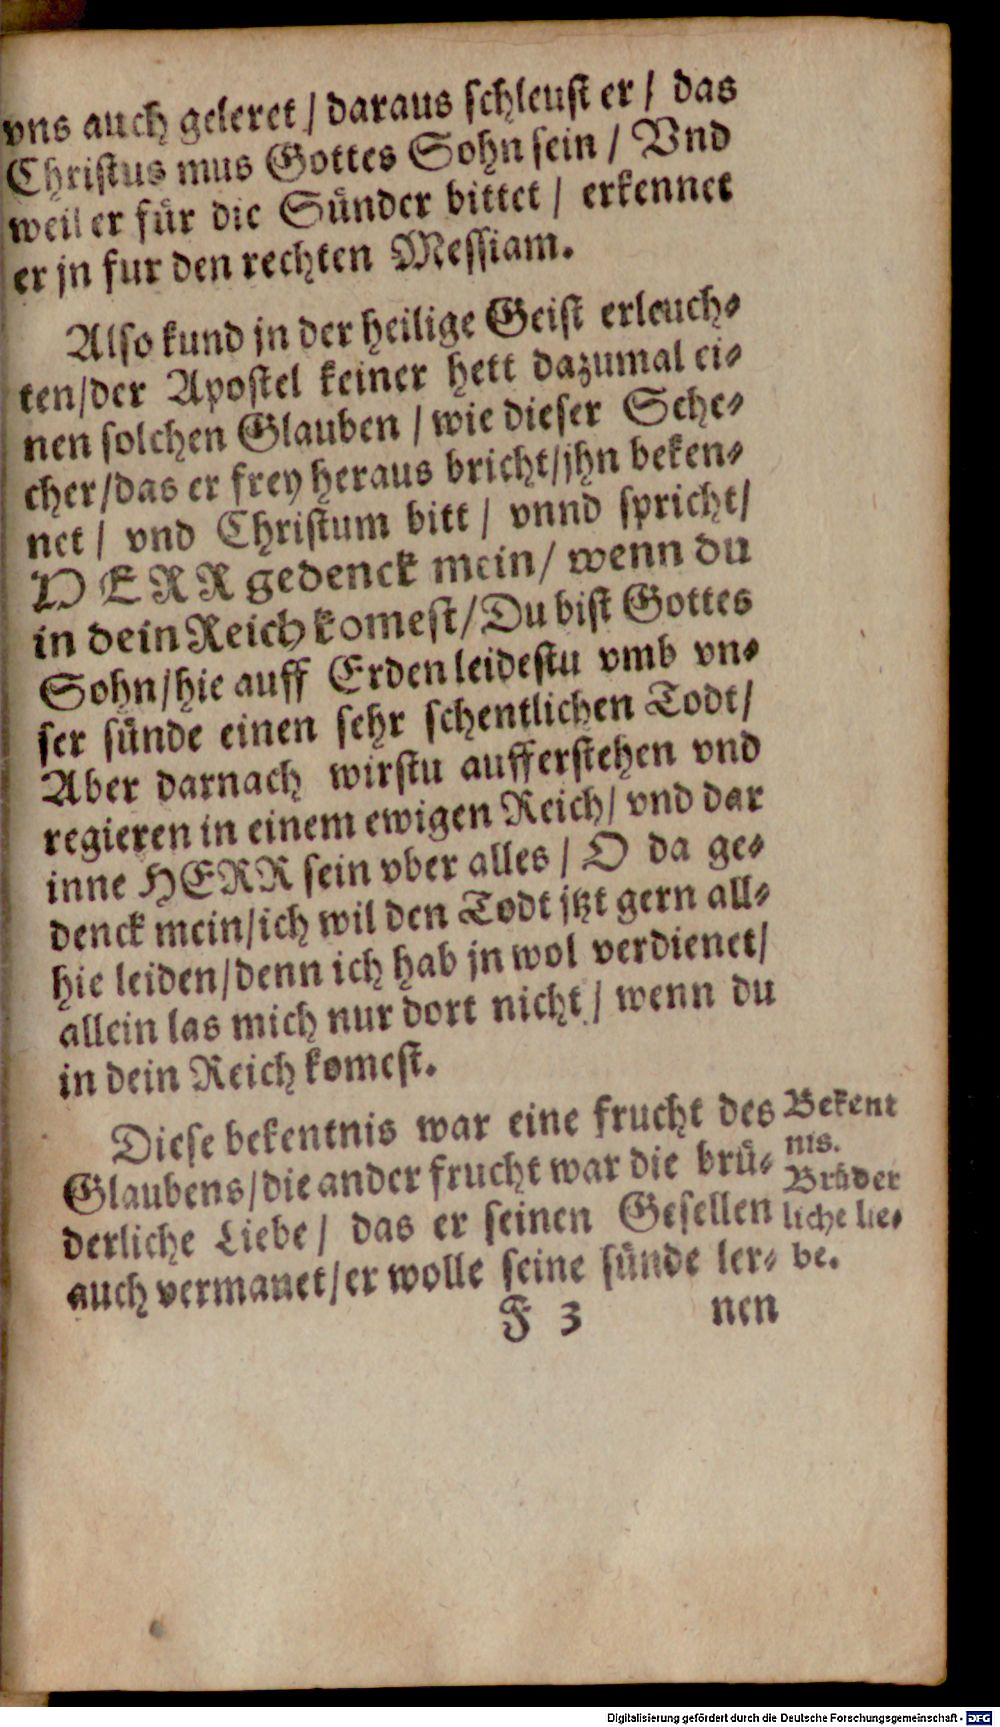 vns auch geleret / daraus schleust er / das
Christus mus Gottes Sohn sein / Vnd
weil er für die Sünder bittet / erkennet
er jn fur den rechten Messiam.
Also kund jn der heilige Geist erleuch-
ten/der Apostel keiner hett dazumal ei-
nen solchen Glauben / wie dieser Sche-
cher/das er frey heraus bricht/jhn beken-
net / vnd Christum bitt / vnnd spricht/
HERR gedenck mein/ wenn du
in dein Reich komest/Du bist Gottes
Sohn/hie auff Erden leidestu vmb vn-
ser sünde einen sehr schentlichen Todt/
Aber darnach wirstu aufferstehen vnd
regieren in einem ewigen Reich/ vnd dar
inne HERR sein vber alles / O da ge-
denck mein/ich wil den Todt jtzt gern all-
hie leiden/denn ich hab jn wol verdienet/
allein las mich nur dort nicht / wenn du
in dein Reich komest.
Diese bekentnis war eine frucht des
Glaubens/die ander frucht war die brü-
derliche Liebe / das er seinen Gesellen
auch vermanet/er wolle seine sünde ler-
Bekent
nis.
Brüder
liche lie-
be.
F 3 nen
Digitalisierung gefördert durch die Deutsche Forschungsgemeinschaft - DFG